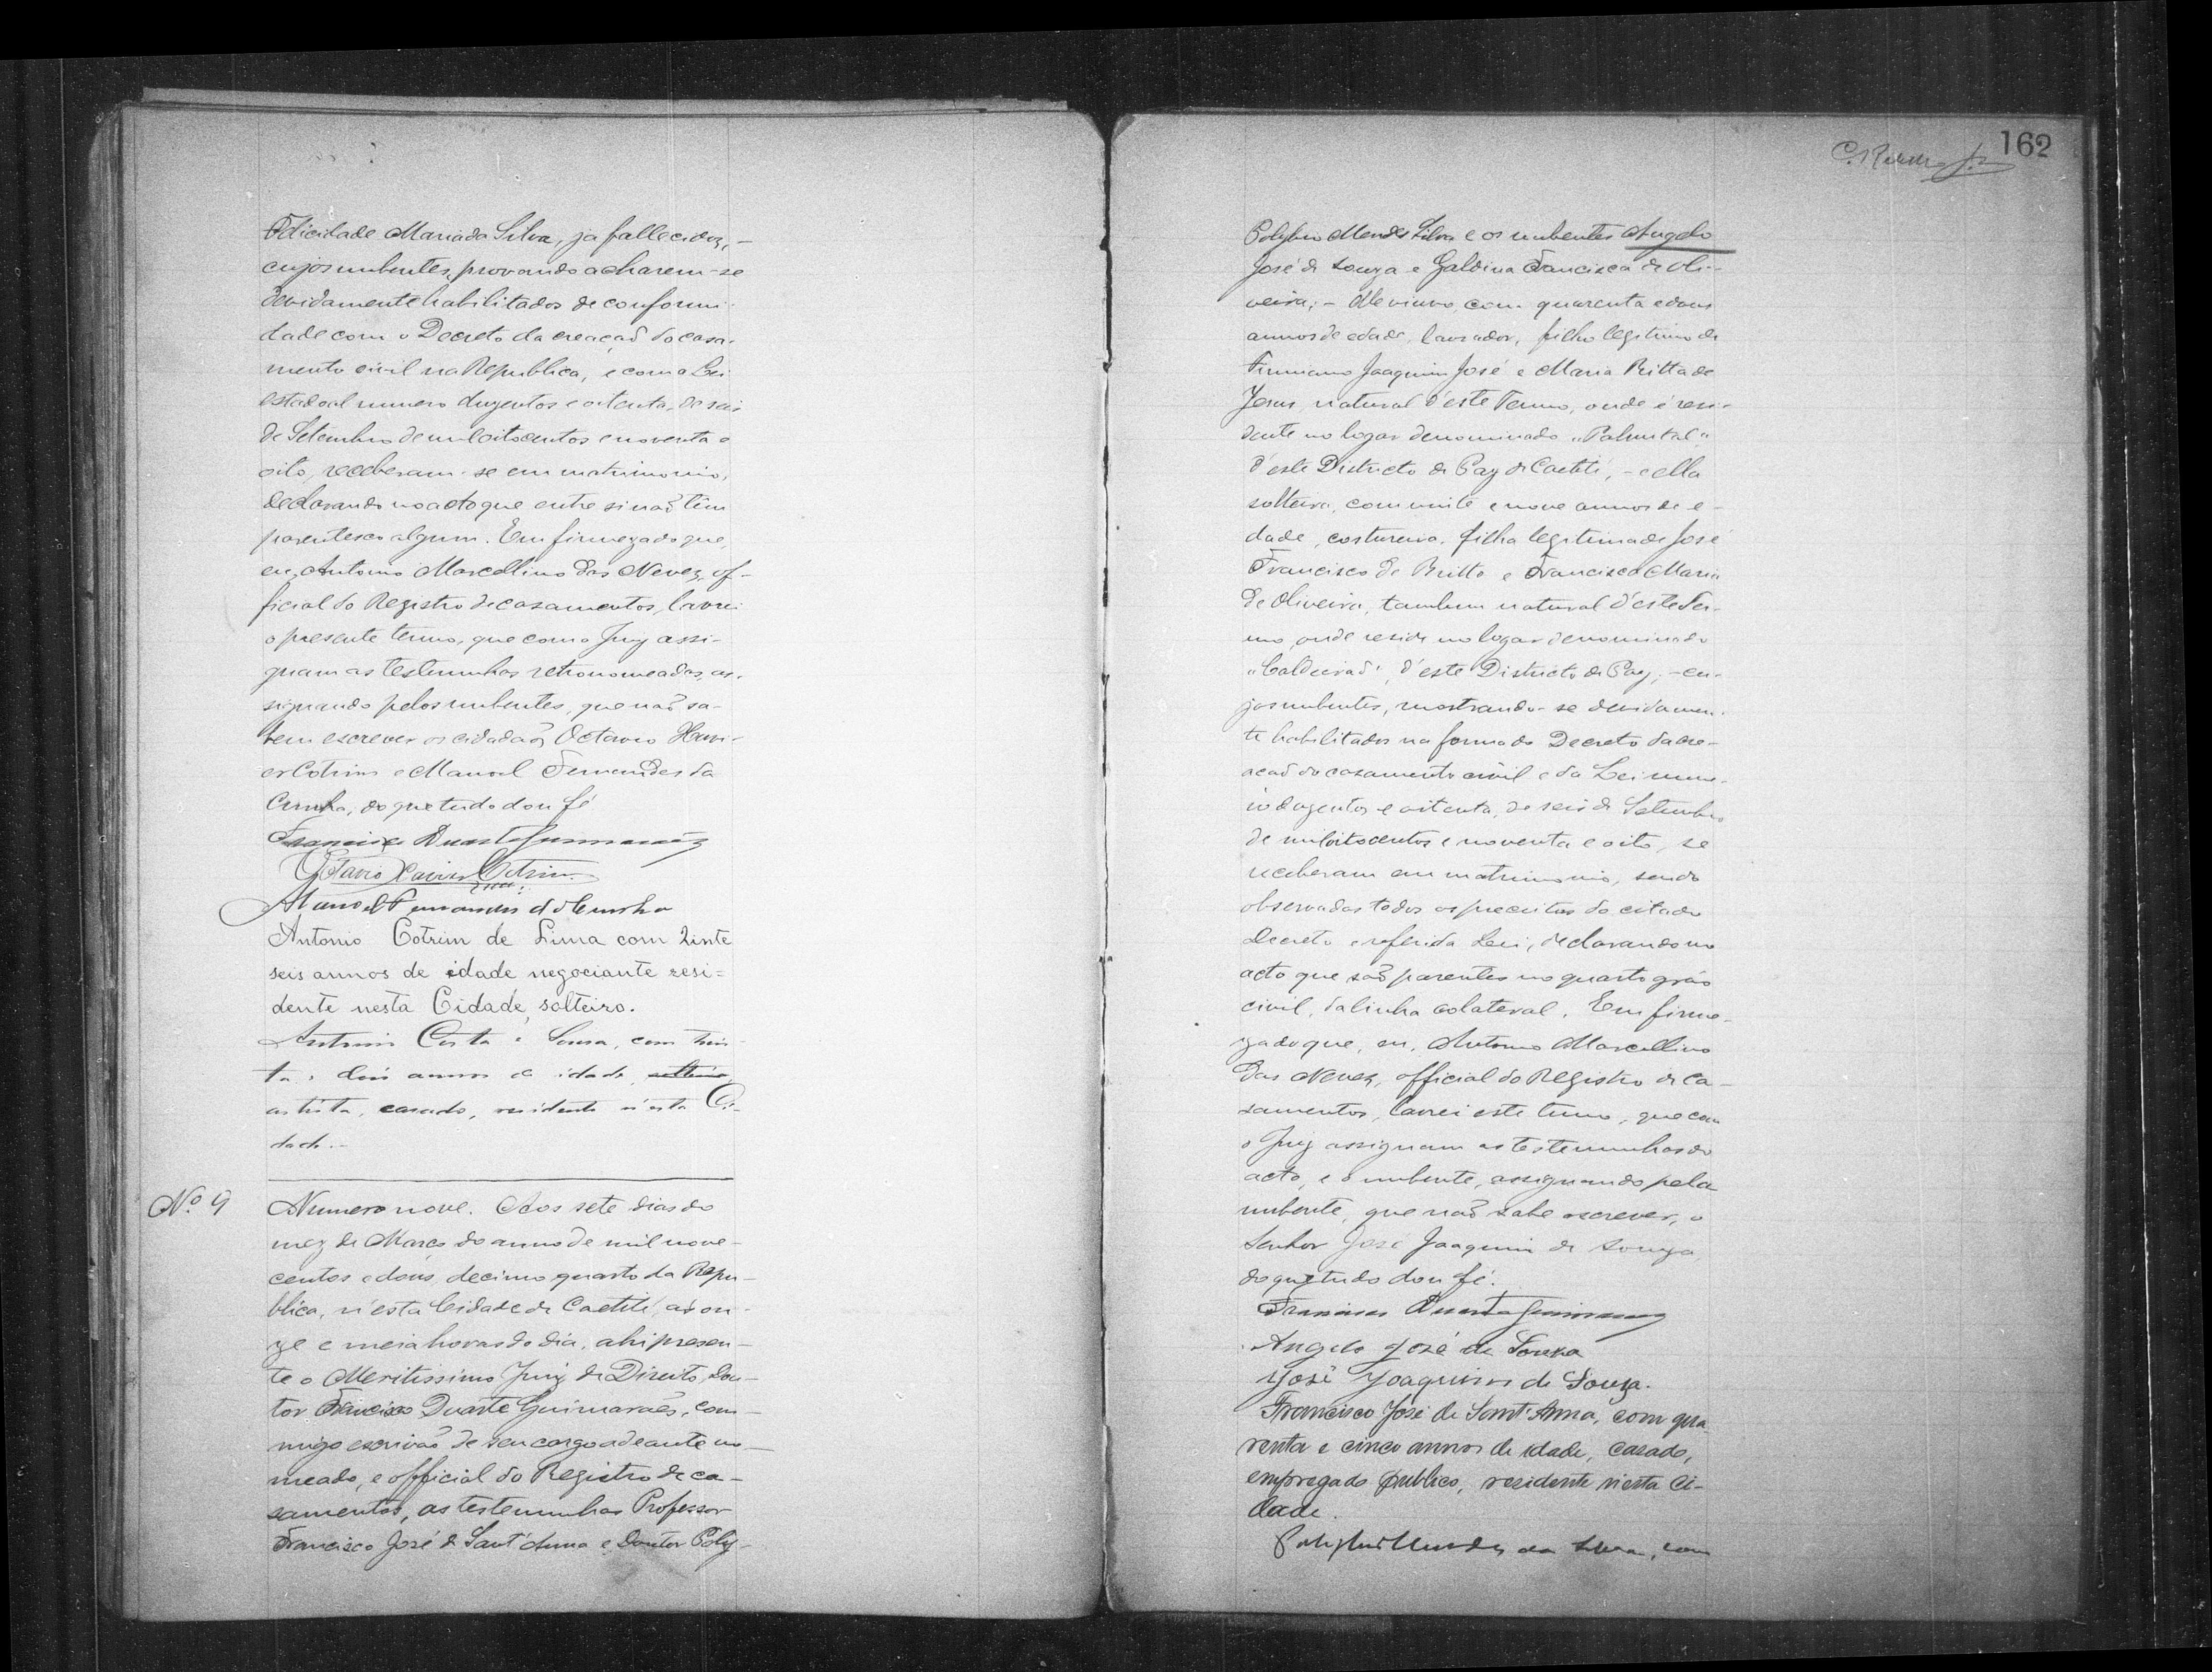 Felicidade Maria da Silva, ja fallecidos, -
cujos nubentes, provando acharem-se
devidamente habilitados de conformi-
dade com o Decreto da creaçaõ do casa-
mento civil na Republica, e com a Lei
estadoal numero duzentos e oitenta, de seis
de Setembro de mil oitocentos e noventa e
oito, receberam-se em matrimonio,
declarando no acto que entre si naõ têm
parentesco algum. Em firmeza do que,
eu, Antonio Marcellino das Neves, of-
ficial do Registro de casamentos, lavrei
o presente termo, que com o Juiz assi-
gnam as testemunhas retronomeadas, as-
signando pelos nubentes, que naõ sa-
bem escrever os cidadaõs Octavio Xavi-
er Cotrim e Manoel Fernandes da
Cunha, do que tudo dou fé
Francisco Duarte Guimarães
Octavio Xavier Cotrim
Manoel Fernandes da Cunha
Antonio Cotrim de Lima com vinte
seis annos de idade negociante resi=
dente nesta Cidade, solteiro.
Antonio Costa e Sousa, com trin-
ta e dois annos de idade, solteiro
artista, casado, residente n'esta Ci-
dade.-
Nº 9
Numero nove. Aos sete dias do
mez de Março do anno de mil nove-
centos e dous, decimo quarto da Repu-
blica, n'esta Cidade de Caetité, ás on-
ze e meia horas do dia, ahi presen-
te o Meritissimo Juiz de Direito, Dou-
tor Francisco Duarte Guimaraẽs, com-
migo escrivaõ de seu cargo adeante no-
meado, e official do Registro de ca-
samentos, as testemunhas Professor
Francisco José de Sant'Anna e Doutor Poly-
162
Polybio Mendes Silva e os nubentes Angelo
José de Souza e Galdina Francisca de Oli-
veira; - elle viuvo, com quarenta e dous
annos de edade, lavrador, filho legitimo de
Firmiano Joaquim José e Maria Ritta de
Jesus, natural d'este Termo, onde é resi-
dente no logar denominado "Palmital"
d'este Districto de Paz de Caetité, - e ella
solteira, com vinte e nove annos de e-
dade, costureira, filha legitima de José
Francisco de Britto e Francisca Maria
de Oliveira, tambem natural d'este Ter-
mo, onde reside no logar denominado
"Caldeiraõ", d'este Districto de Paz; - cu-
jos nubentes, mostrando-se devidamen-
te habilitados na forma do Decreto da cre-
açaõ do casamento civil e da Lei nume-
ro duzentos e oitenta, de seis de Setembro
de mil oitocentos e noventa e oito, se
receberam em matrimonio, sendo
observados todos os preceitos do citado
Decreto e referida Lei, declarando no
acto que saõ parentes no quarto gráo
civil, da linha colateral. Em firme-
za do que, eu, Antonio Marcellino
das Neves, official do Registro de ca-
samentos, lavrei este termo, que com
o Juiz assignam as testemunhas do
acto, e o nubente, assignando pela
nubente, que naõ sabe escrever, o
Senhor José Joaquim de Souza
do que tudo dou fé.
Francisco Duarte Guimarães
Angelo José de Souza
José Joaquim de Souza.
Francisco José de Sant'Anna, com qua
renta e cinco annos de idade, casado,
empregado publico, residente n'esta Ci-
dade.
Polybio Mendes da Silva, com